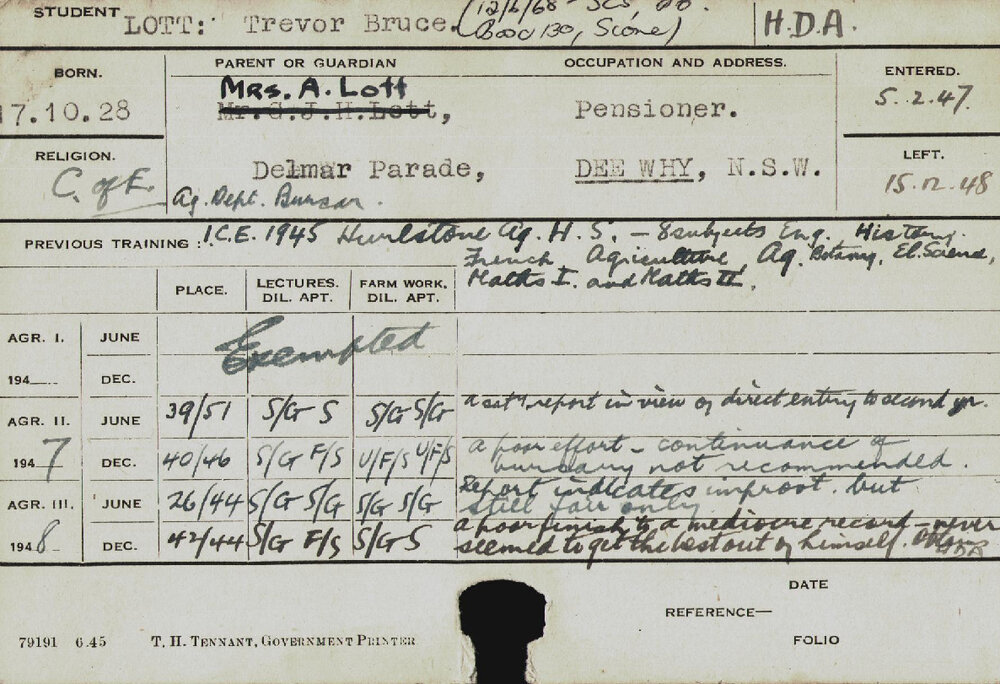 STUDENT LOTT: Trevor Bruce. (12/6/68 - SCS, H.D.A.
Box 130, Scone)
BORN. PARENT OR GUARDIAN OCCUPATION AND ADDRESS. ENTERED.
Mrs. A. Lott 5.2.47.
17.10.28 Mr. G.J.H. Lott, Pensioner.
RELIGION. LEFT.
C. of E. Delmar Parade, DEE WHY, N.S.W. 15.12.48
Ag. Dept. Bursar.
PREVIOUS TRAINING: I.C.E. 1945 Hurlstone Ag. H. S. - 8 subjects Eng. History.
French Agriculture, Ag. Botany, El. Science,
Maths I. and Maths II.
PLACE. LECTURES. FARM WORK.
DIL. APT. DIL. APT.
AGR. I. JUNE Exempted
194 DEC.
AGR. II. JUNE 39/51 S/G S S/G S/G a sat. report in view of direct entry to second yr.
1947 DEC. 40/46 S/G F/S U/F/S U/F/S a poor effort - continuance of
bursary not recommended.
AGR. III. JUNE 26/44 S/G S/G S/G S/G Report indicates improvt. but
still fair only.
1948 DEC. 42/44 S/G F/S S/G S a poor finish to a mediocre record - never
seemed to get the best out of himself.
HDA
DATE
REFERENCE—
FOLIO
79191 6.45 T. H. TENNANT, GOVERNMENT PRINTER